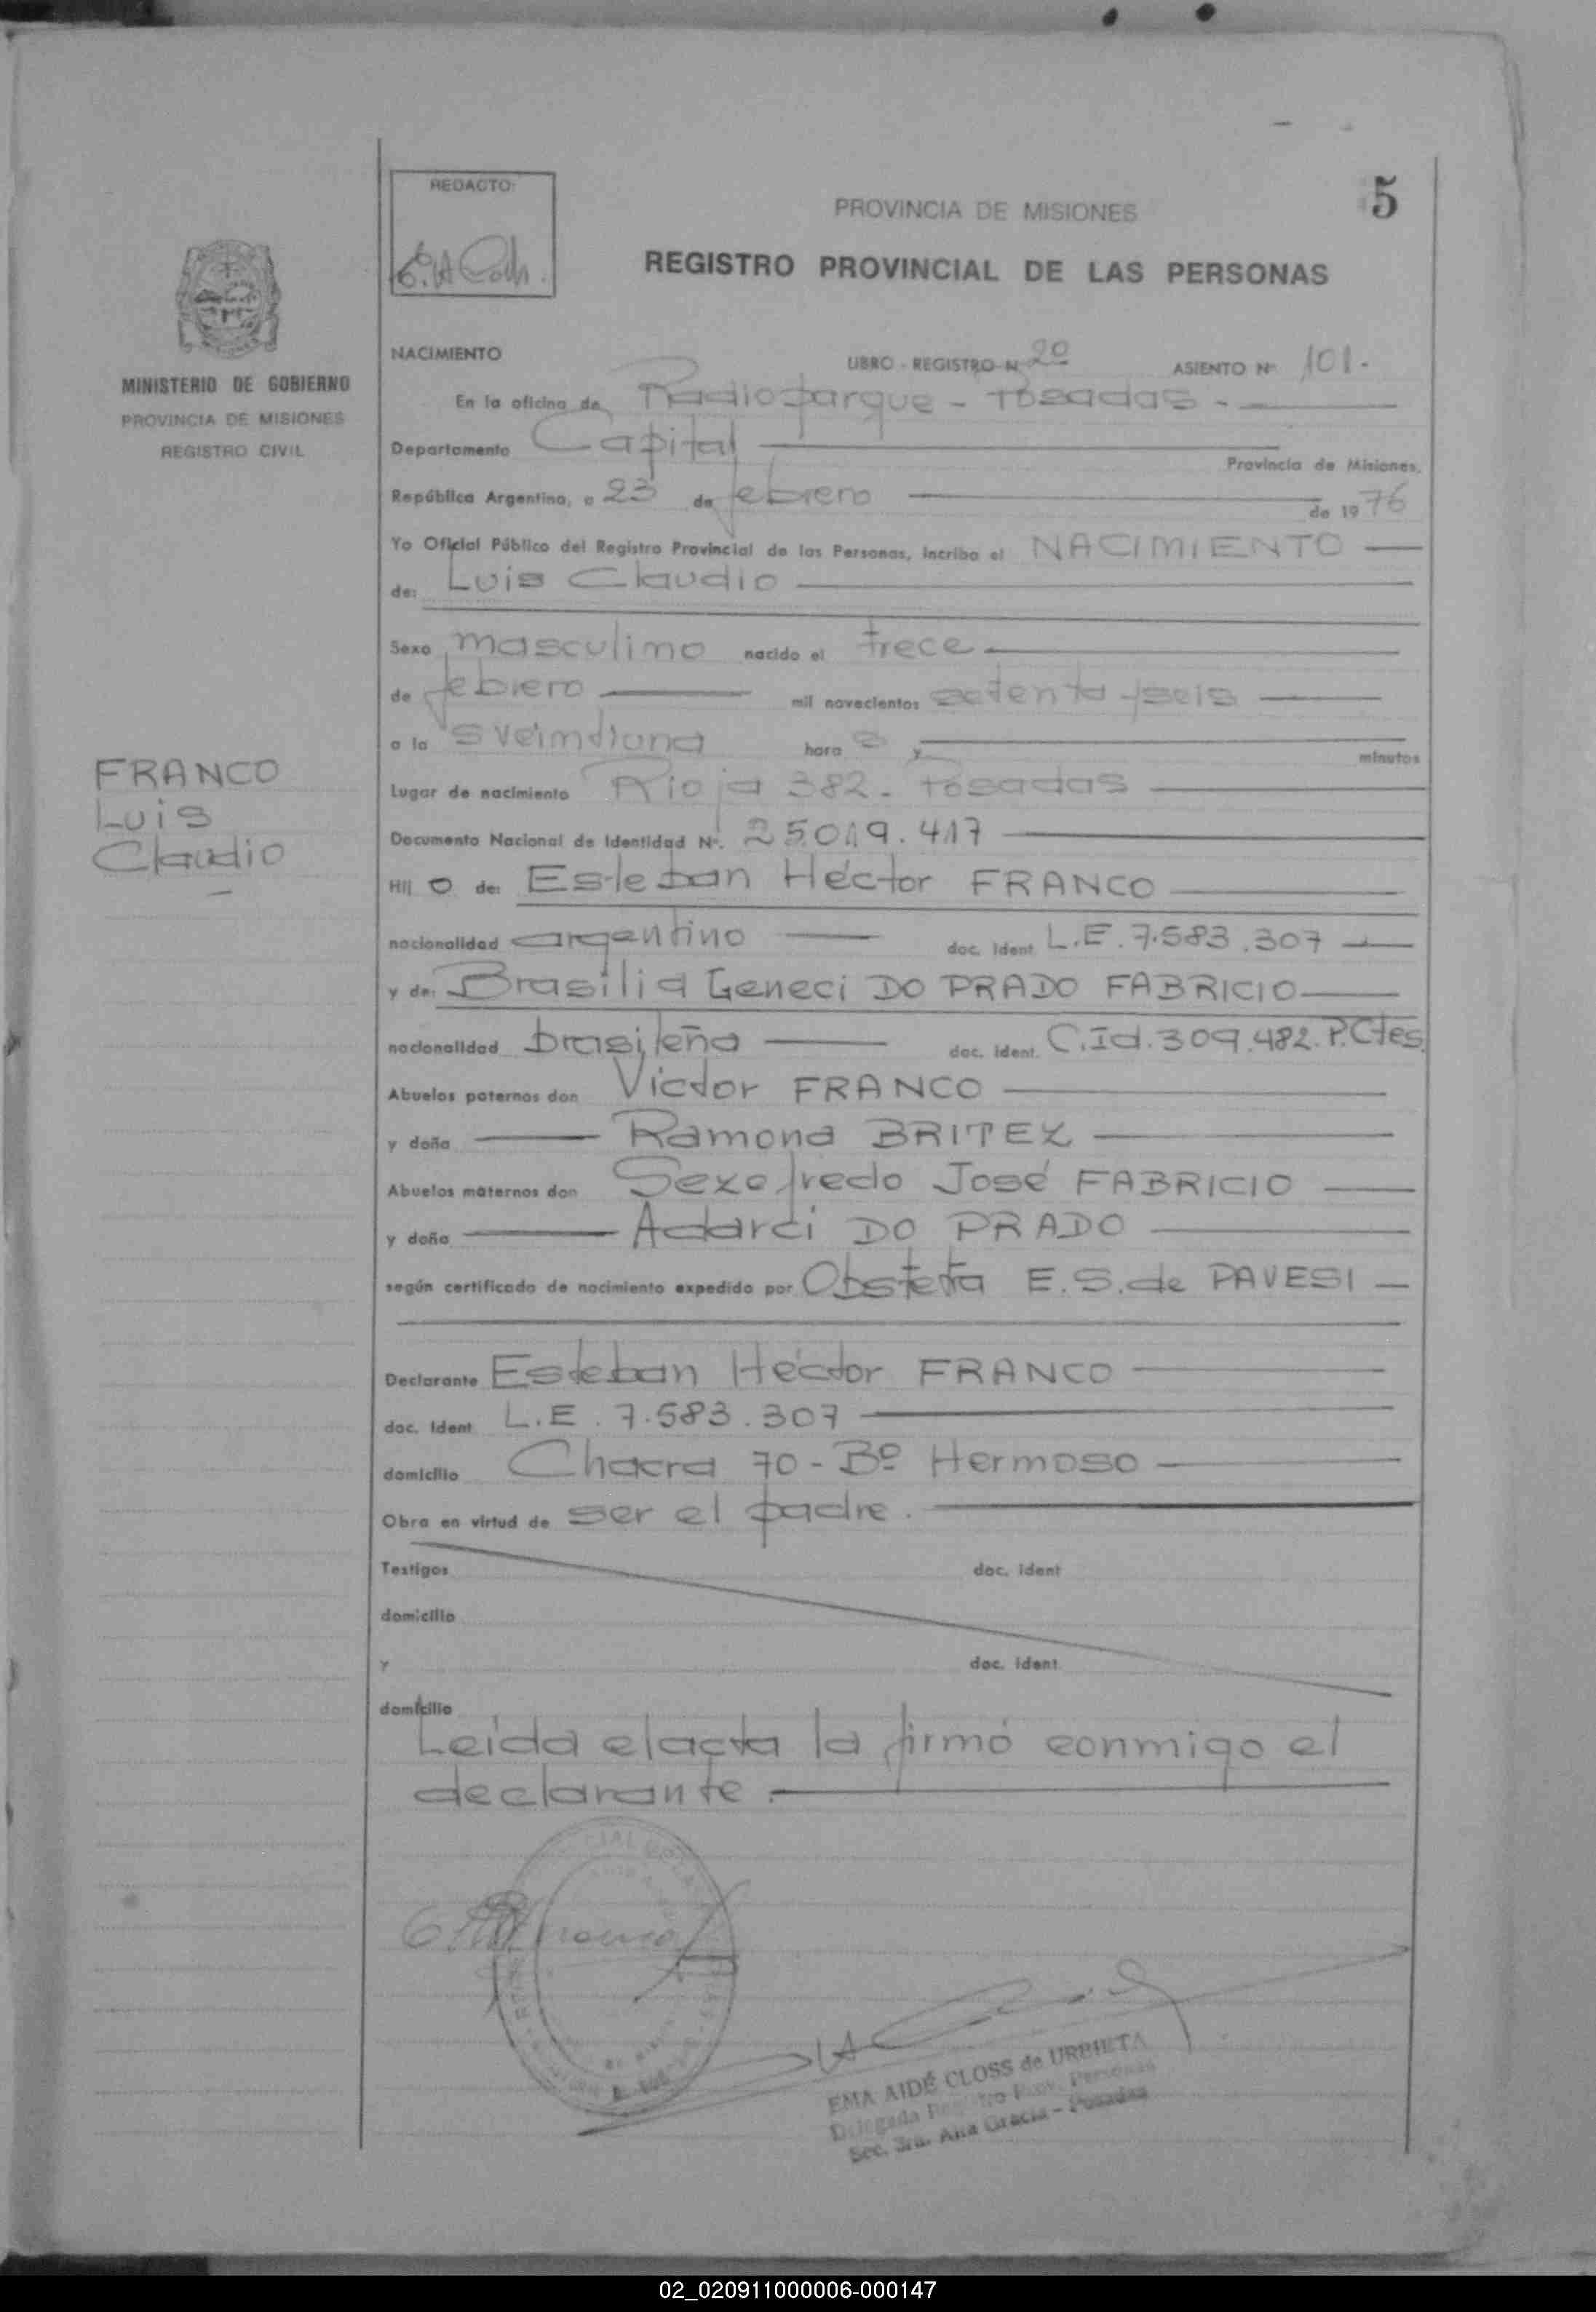 REDACTO:
5
PROVINCIA DE MISIONES
REGISTRO PROVINCIAL DE LAS PERSONAS
MINISTERIO DE GOBIERNO
PROVINCIA DE MISIONES
REGISTRO CIVIL
NACIMIENTO LIBRO - REGISTRO Nº 2º ASIENTO Nº 101.-
En la oficina de Radioparque - Posadas. -
Departamento Capital Provincia de Misiones,
República Argentina, a 23 de febrero de 1976
Yo Oficial Público del Registro Provincial de las Personas, incribo el NACIMIENTO
de: Luis Claudio
Sexo masculino nacido el trece
de febrero mil novecientos setenta y seis
a la hora 8 y minutos
FRANCO
Luis
Claudio
Lugar de nacimiento Rioja 382. Posadas
Documento Nacional de Identidad Nº. 25.019.417
Hij o de: Esteban Héctor FRANCO
nacionalidad argentino doc. ident. L.E. 7.583.307
y de: Brasilia Geneci DO PRADO FABRICIO
nacionalidad brasileña doc. ident. C.Id. 309.482. P.Ctes.
Abuelos paternos don Victor FRANCO
y doña Ramona BRITEZ
Abuelos maternos don Sexefredo José FABRICIO
y doña Adarci DO PRADO
según certificado de nacimiento expedido por Obstetra E.S. de PAVESI
Declarante Esteban Héctor FRANCO
doc. ident L.E. 7.583.307
domicilio Chacra 70 - Bº Hermoso
Obra en virtud de ser el padre.
Testigos doc. ident
domicilio
y doc. ident.
domicilio
Leída el acta la firmó conmigo el
declarante.
EMA AIDÉ CLOSS de URBIETA
Delegada Registro Prov. Personas
Sec. 3ra. Alta Gracia - Posadas
02_020911000006-000147